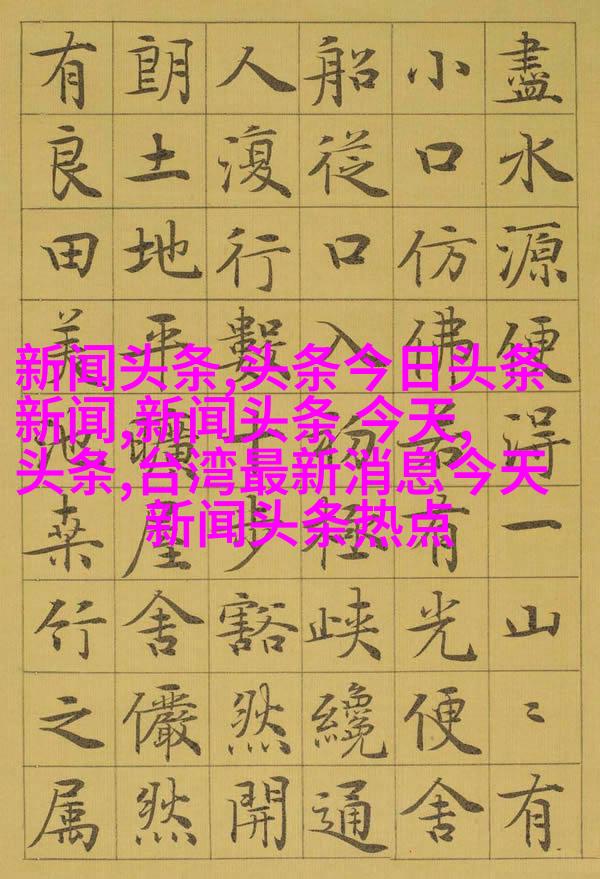 盡水源便得一山〻有
小口仿佛若有光便舍
船從口入初極峽纔通
人復行數十步豁然開
朗土地平曠屋舍儼然
有良田美池桑竹之属
新闻头条,头条今日头条
新闻,新闻头条 今天,
头条,台湾最新消息今天
新闻头条热点